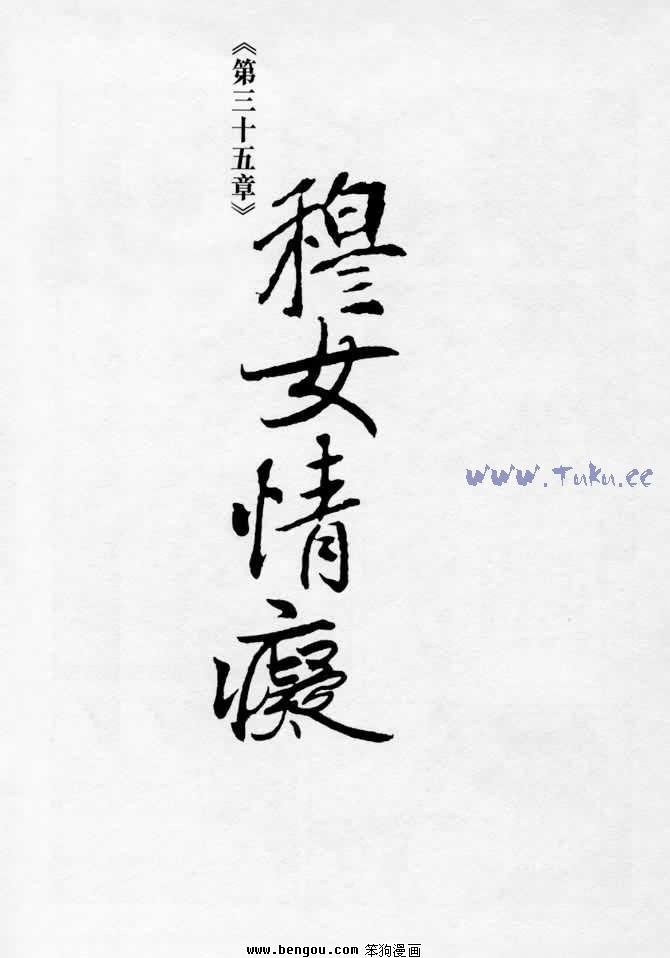 《第三十五章》
穆女情癡
www.Tuku.cc
www.bengou.com 笨狗漫画